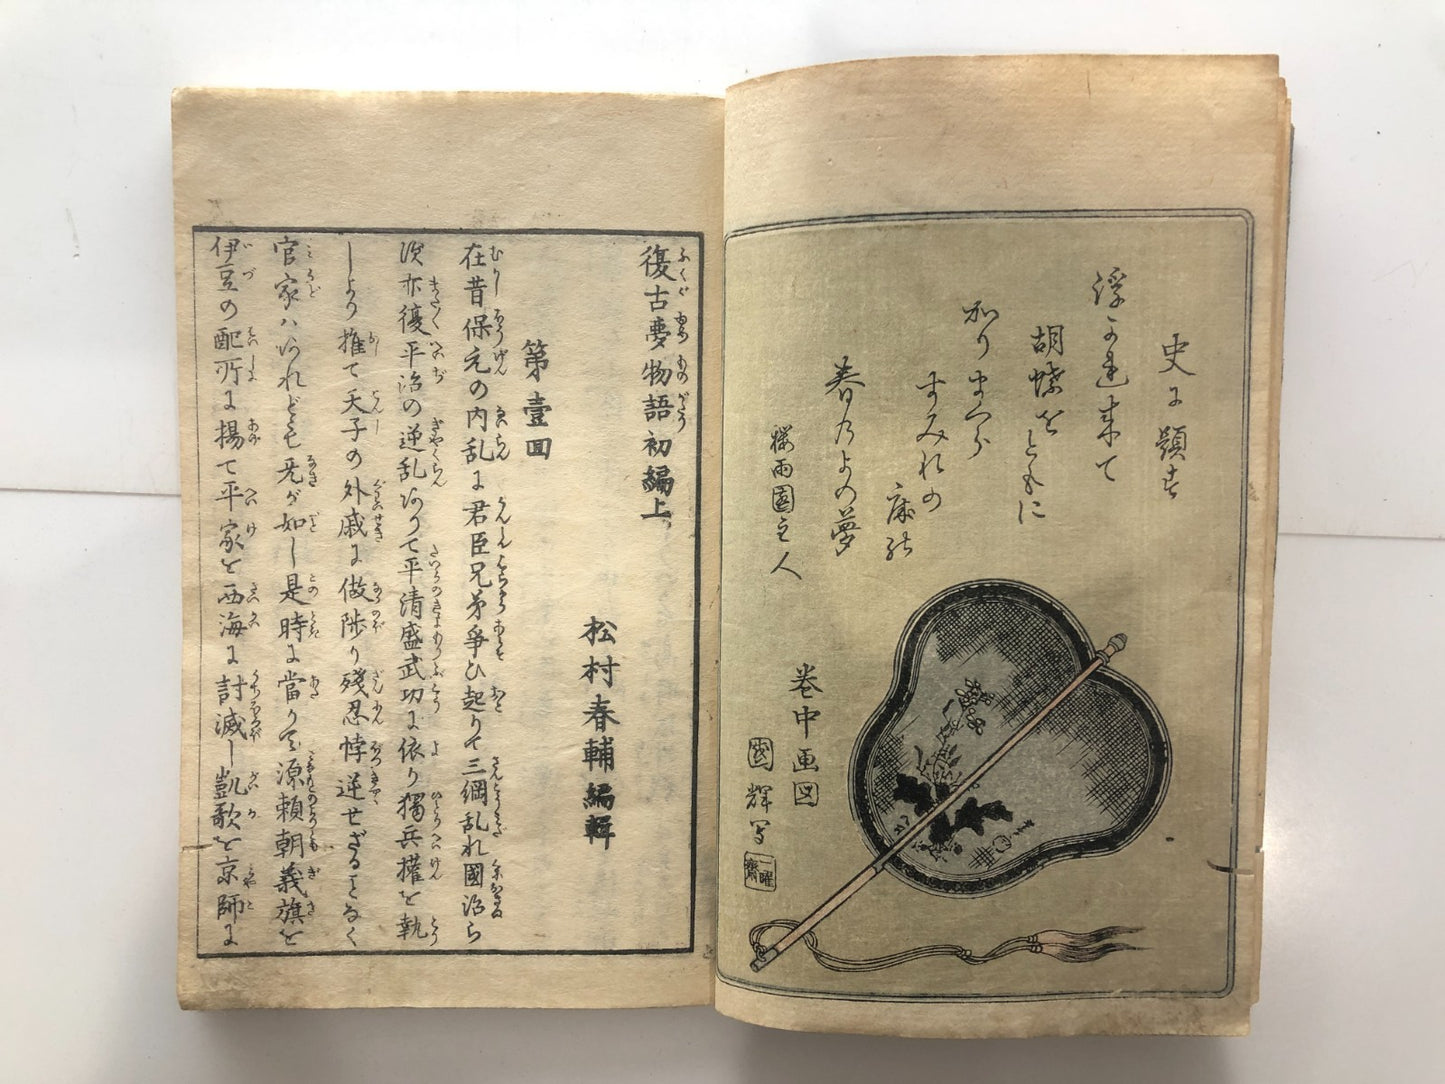 史に題す
浮かれ来て
胡蝶をともに
かりまくら
すみれの
床の
春のよの夢
桜雨園主人
巻中画図
國輝写
一曜齋
復古夢物語初編上
松村春輔編輯
第壹回
在昔保元の内乱に君臣兄弟争ひ起りて三綱乱れ國治ら
次亦復平治の逆乱ありて平清盛武功に依り獨兵權を執
しより推て天子の外戚に倣陟り残忍悖逆せざることなく
官家ハあれども无が如し是時に當りて源頼朝義旗を
伊豆の配所に揚て平家を西海に討滅し凱歌を京師に